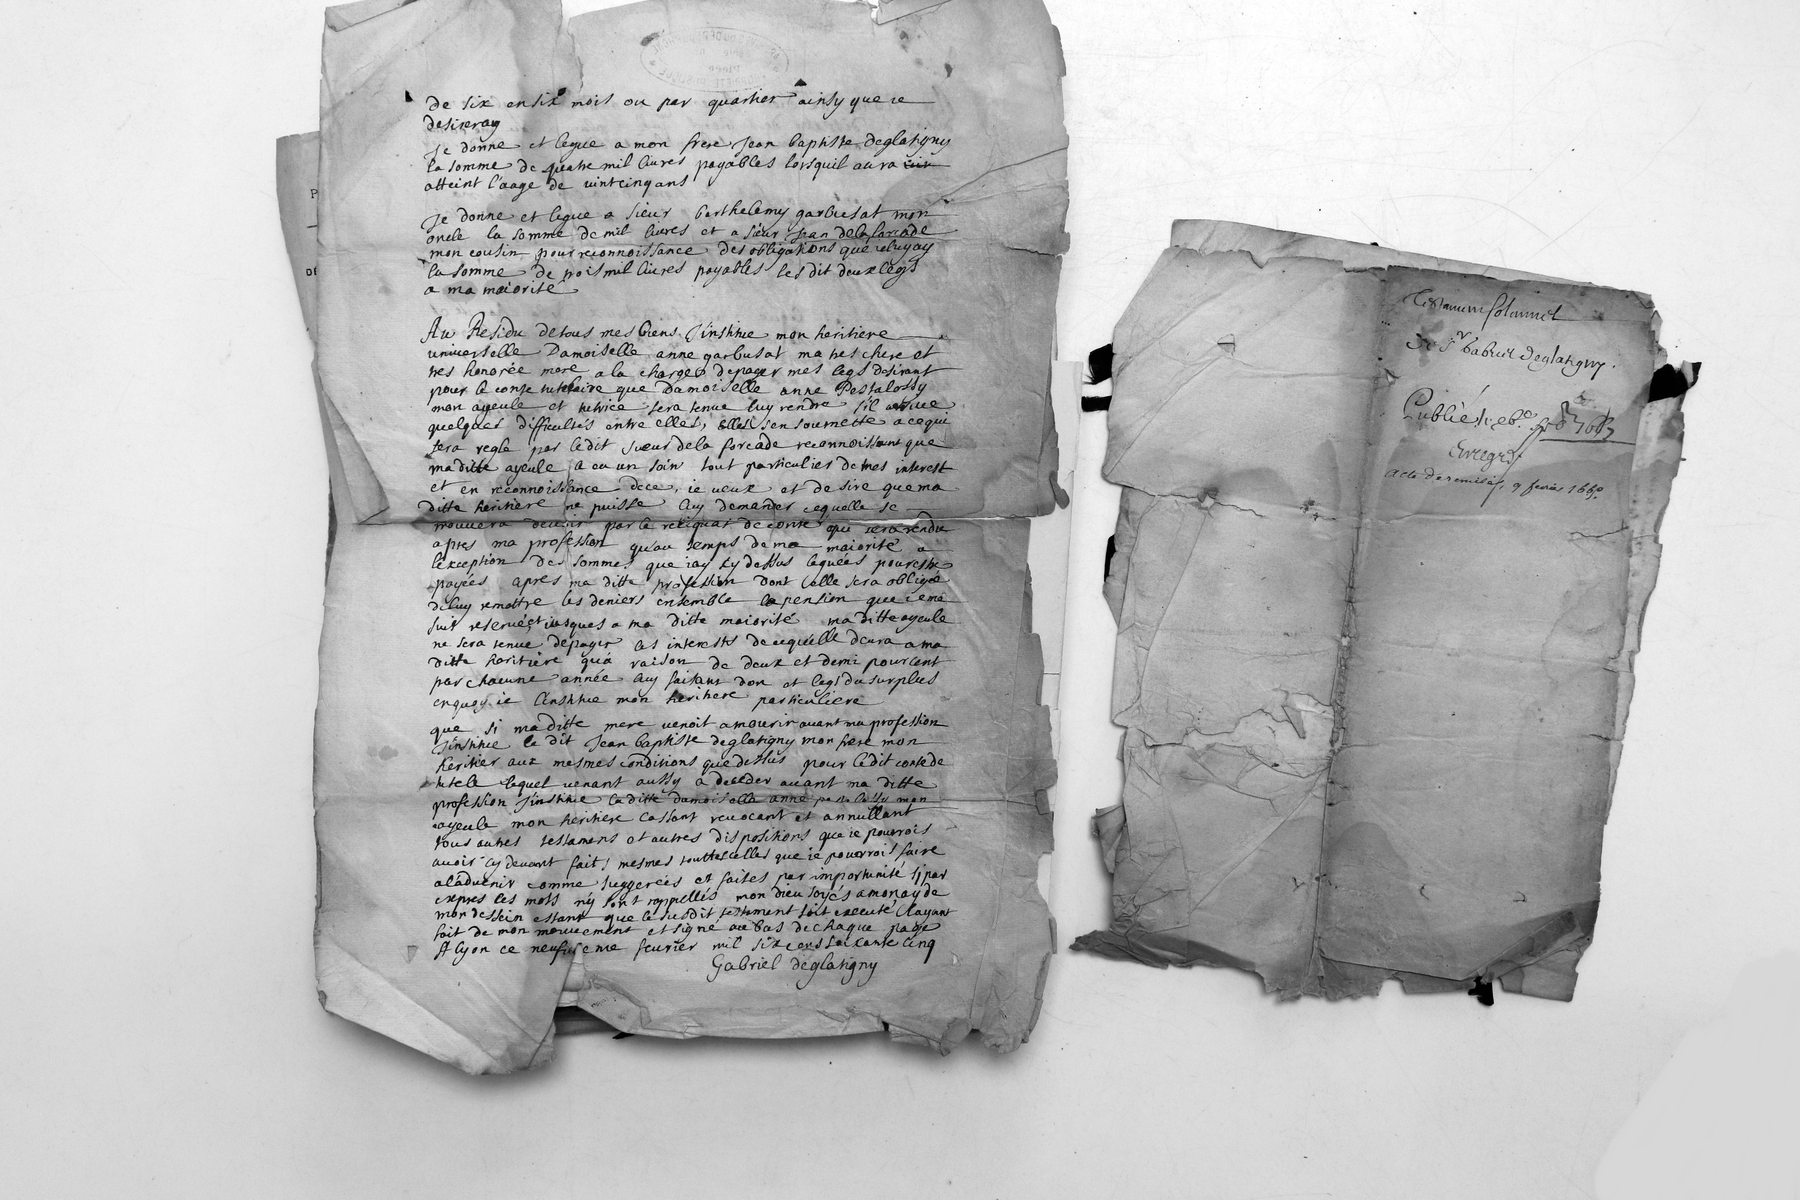 de six en six mois ou par quartier ainsy que ie
desireray
Je donne et legue a mon frere Jean baptiste deglatigny
la somme de quatre mil liures payables lorsquil aura
atteint l'aage de uintcinq ans
Je donne et legue a sieur barthelemy garbusat mon
oncle la somme de mil liures et a sieur Jean de la forcade
mon cousin pour reconnoissance des obligations que ie luy ay
la somme de trois mil liures payables les dit deux legs
a ma maiorité
Au Residu de tous mes biens J'institue mon heritiere
uniuerselle Damoiselle anne garbusat ma tres chere et
tres honorée mere a la charge de payer mes legs desirant
pour le conte tutelaire que Damoiselle anne Pestalossy
mon ayeule et tutrice sera tenue luy rendre s'il arriue
quelques difficultés entre elles, elles s'en soumette a ce qui
sera regle par ledit sieur de la forcade reconnoissant que
ma ditte ayeule a eu un soin tout particulier de mes interest
et en reconnoissance de ce, ie ueux et desire que ma
ditte heritiere ne puisse luy demander ce quelle se
trouuera deuoir par le reliquat de conte qui sera rendu
apres ma profession qu'au temps de ma maiorité a
l'exception des sommes que iay cy dessus leguées pour estre
payées apres ma ditte profession dont elle sera obligée
de luy remettre les deniers ensemble la pension que ie me
suis reserué et iusques a ma ditte maiorité ma ditte ayeule
ne sera tenue de payer les interests de ce quelle deura a ma
ditte heritière qu'à raison de deux et demi pour cent
par chacune année luy faisant don et legs du surplus
en quoy ie l'institue mon heritiere particuliere
que si ma ditte mere uenoit a mourir auant ma profession
J'institue le dit Jean baptiste deglatigny mon frere mon
heritier aux mesmes conditions que dessus pour ledit conte de
tutele lequel uenant aussy a deceder auant ma ditte
profession J'institue laditte damoiselle anne pestalossy mon
ayeule mon heritiere cassant reuocant et annullant
tous autres testamens et autres dispositions que ie pourrois
auoir cy deuant fait, mesmes touttes celles que ie pourrois faire
a laduenir comme suggerées et faites par importunité si par
expres les mots n'y sont rappellés mon dieu soyés a mon ayde
mon dessein estant que le susdit testament soit executé l'ayant
fait de mon mouuement et signé au bas de chaque page
A lyon ce neufuieme feurier mil six cens soixante cinq
Gabriel deglatigny
Testament solennel
de Sr Gabriel Deglatigny.
Publié
Enregré
Acte de remise